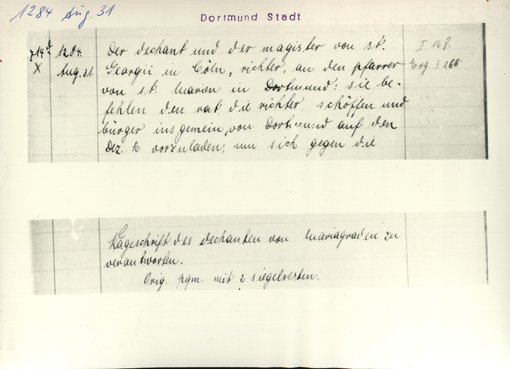 1284 Aug. 31
Dortmund Stadt
714d 1284 Der dechant und der magister von st. I 168
X Aug. 31. Georgii in Cöln, richter, an den pfarrer Erg. I 266
von st. Marien in Dortmund: sie be-
fehlen den rat, die richter schöffen und
bürger insgemein von Dortmund auf den
Dez. 16 vorzuladen, um sich gegen die
klageschrift des dechanten von Mariagraden zu
verantworten.
Orig. pgm. mit 2 siegelresten.